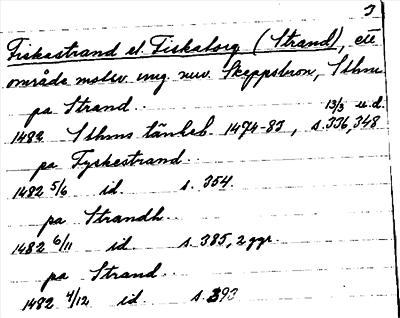 J
Fiskestrand el. Fiskaborg (Strand), ett
område motsv. ung. nuv. Skeppsbron, Sthm
pa Strand..
13/3 u.d.
1482 Sthms tänkeb. 1474-83, s. 336, 348
pa Fyskestrand..
1482 5/6 id. s. 354.
pa Strandh..
1482 6/11 id. s. 385, 2 ggr.
pa Strand..
1482 4/12 id. s. 393